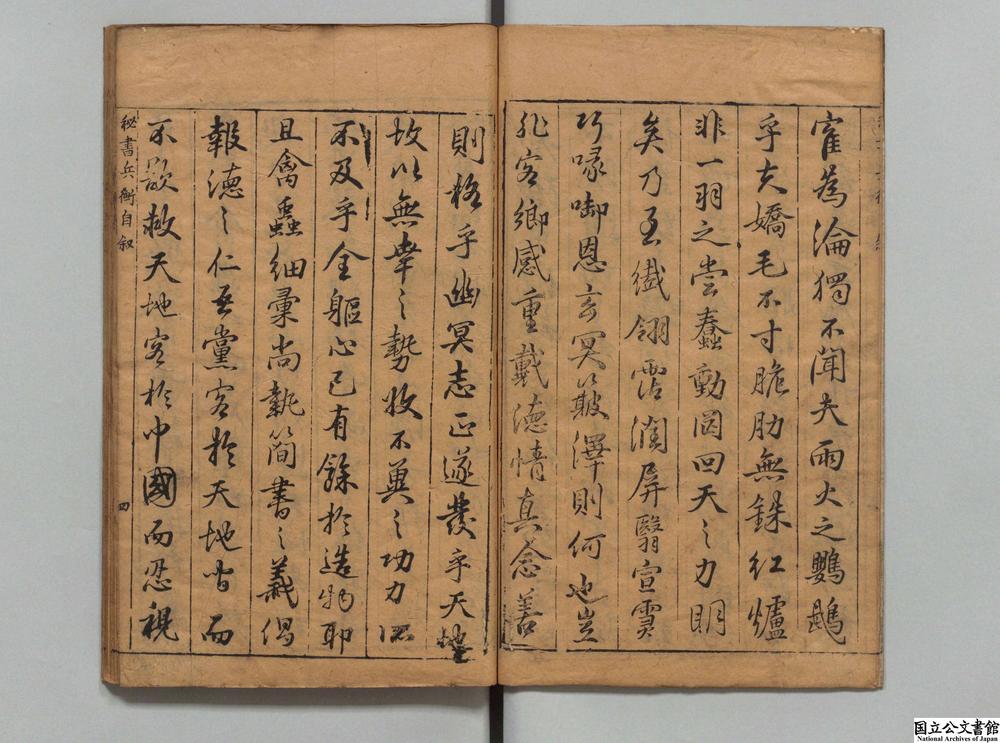 寉為淪獨不聞夫雨火之鸚鵡
乎夫嬌毛不寸脆肋無銖紅爐
非一羽之嘗蠢動罔回天之力明
矣乃至纎翎霑濶屏翳宣雪
巧喙啣恩玄冥簸澤則何也豈
非客鄉感重戴德情真念善
則格乎幽冥志正遂發乎天地
故以無幸之勢收不冀之功力
不及乎全軀心已有餘於造物耶
且禽蟲細彙尚執簡書之義偈
報德之仁吾黨客於天地也而
不欲救天地客於中國而忍視
秘書兵衡自叙
四
国立公文書館
National Archives of Japan